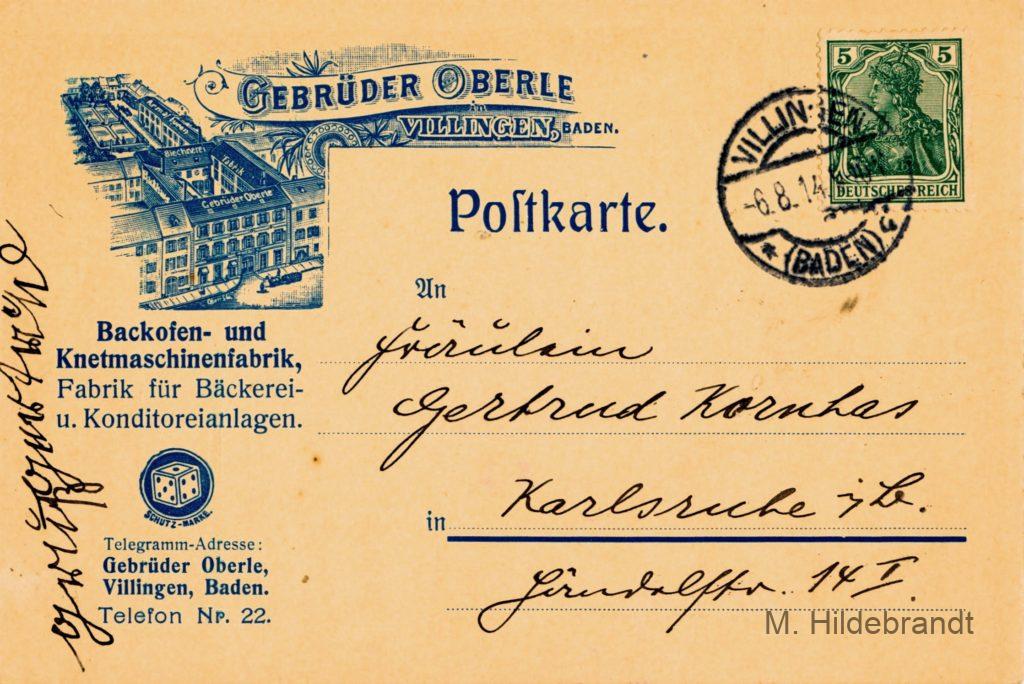 GEBRÜDER OBERLE
in
VILLINGEN, BADEN.
Armaturen
Blechnerei
Fabrik
Gebrüder Oberle
5 5
DEUTSCHES REICH
VILLINGEN
-6.8.14
* (BADEN) *
Poſtkarte.
An
Backofen- und
Knetmaschinenfabrik,
Fabrik für Bäckerei-
u. Konditoreianlagen.
SCHUTZ-MARKE.
Telegramm-Adresse:
Gebrüder Oberle,
Villingen, Baden.
Telefon Nr. 22.
Fräulein
Gertrud Kornhas
in Karlsruhe i/B.
14 I.
M. Hildebrandt